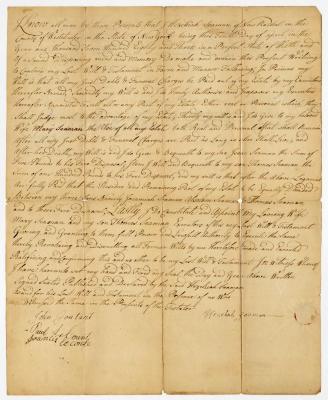 Know all men by these Presents that I Hezekiah Seaman of New Rochell in the
County of Westchester in the State of New York being this day of april in the
Year one thousand Seven Hundred Eighty and three in a Perfect State of Health and
of Sound Disposing mind and Memory Desirable and where this Perfect
to Confirm my Last Will & Testament in Form and Manner Following In Primiss I
Will that all my Just Debts & Funeral Charges be Paid out of my Estate by my Executors
hereafter Named, Secondly my Will is and I do hereby Authorize and Impower my Executors
hereafter Appointed to sell all or any Part of my Estate Either real or Personal which they
Shall Judge most to the advantage of my Estate, Thirdly my will is and I do Give to my beloved
Wife Mary Seaman the Use of all my Estate both Real and Personal
After all my Just Debts & Funeral Charges are Paid So Long as She
After which my Will is and I do Give & Bequeath to my son James Seaman the Sum of
Five Pounds to his free Disposal, I Will and Bequeath to my son Thomas Seaman the
Sum of one Pounds to his Free Disposal, and my will is that after the above Legacies
are fully Paid that the Residue and Remaining Part of my Estate to be Equally Divided
Between my three Sons Namely Jeremiah Seaman Seaman & Thomas Seaman
and to them Forever. Lastly I do Constitute and Appoint My Loveing Wife
Mary Seaman and my son Thomas Seaman Executors of this my Last Will & Testament
Giving and Granting to them full Power and Lawfull Authority to Execute the Same
hereby Revoking and Disannulling all Former Wills by me Heretofore Made and
Ratifying and Confirming this and no other to be my Last Will & Testament In Witness Whereof
I have hereunto set my hand and Fixed my Seal the day and Year Above Written
Signed Sealed Published and Declared by the said Hezekiah Seaman
to and for his Last Will and Testament in the Presence of us Who
Witnessed the Same in the Presents of the Testator
Hezekiah Seaman
John Coutant
Paul Le Count
Le Conte